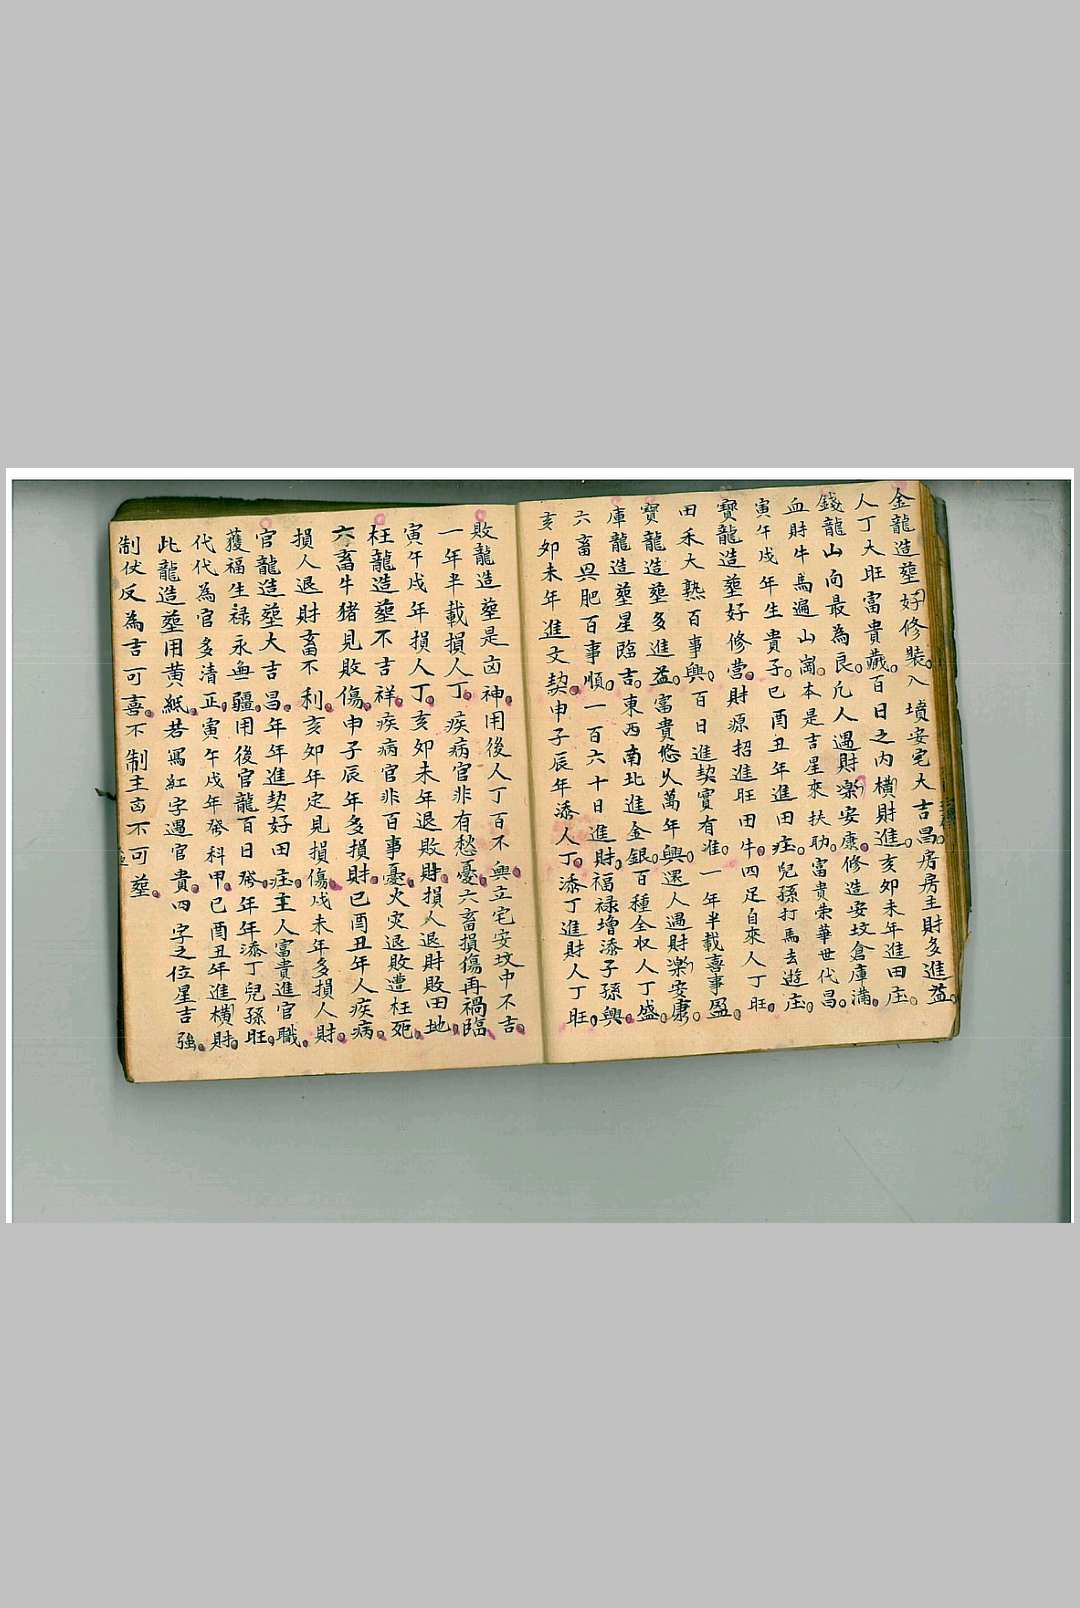 金龍造塟好修裝入墳安宅大吉昌房房主財多進益
人丁大旺富貴藏百日之內橫財進亥卯未年進田庄
錢龍山向最為良凡人遇財樂安康修造安坟倉庫滿
血財牛馬遍山崗本是吉星來扶助富貴荣華世代昌
寅午戌年生貴子巳酉丑年進田庄兒孫打馬去遊庄
寶龍造塟好修营財源招進旺田牛四足自來人丁旺
田禾大熟百事興百日進契實有准一年半載喜事盈
寶龍造塟多進益富貴悠久萬年興還人遇財樂安康
庫龍造塟星臨吉東西南北進金銀百種全収人丁盛
六畜興肥百事順一百六十日進財福禄增添子孫興
亥卯未年進文契申子辰年添人丁添丁進財人丁旺
敗龍造塟是凶神用後人丁百不興立宅安坟中不吉
一年半載損人丁疾病官非有愁憂六畜損傷再禍臨
寅午戌年損人丁亥卯未年退敗財損人退財敗田地
枉龍造塟不吉祥疾病官非百事憂火灾退敗遭枉死
六畜牛猪見敗傷申子辰年多損財巳酉丑年人疾病
損人退財畜不利亥卯年定見損傷戌未年多損人財
官龍造塟大吉昌年年進契好田庄主人富貴進官職
獲福生禄永無疆用後官龍百日發年年添丁兒孫旺
代代為官多清正寅午戌年發科甲巳酉丑年進橫財
此龍造塟用黃紙若寫紅字遇官貴四字之位星吉強
制伏反為吉可喜不制主凶不可塟